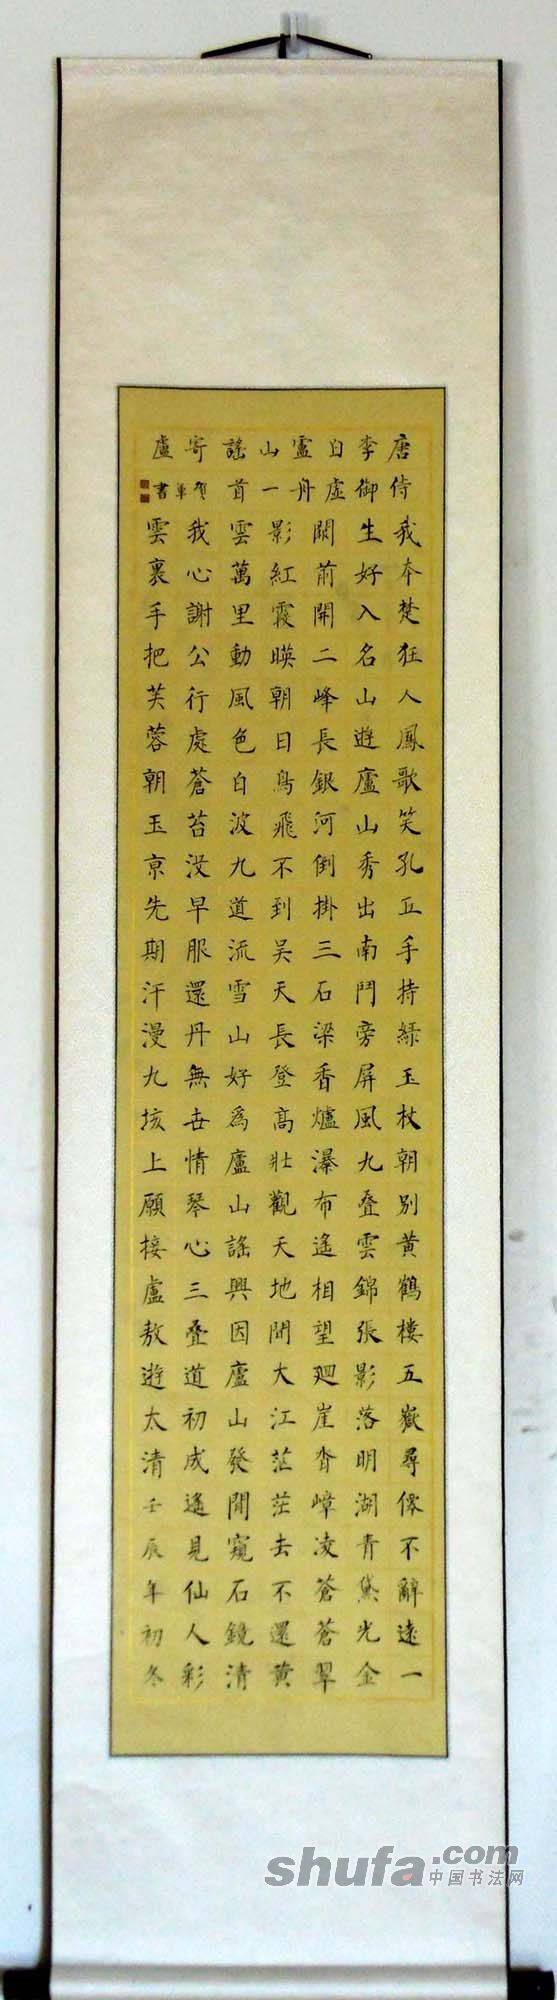 唐李白廬山謠寄盧
侍御虛舟一首
我本楚狂人鳳歌笑孔丘手持綠玉杖朝別黄鶴樓五嶽尋僊不辭遠一
生好入名山遊廬山秀出南鬥旁屏風九叠雲錦張影落明湖青黛光金
闕前開二峰長銀河倒掛三石梁香爐瀑布遙相望廻崖沓嶂凌蒼蒼翠
影紅霞暎朝日鳥飛不到吴天長登高壯觀天地間大江茫茫去不還黄
雲萬里動風色白波九道流雪山好爲廬山謠興因廬山發閒窺石鏡清
我心謝公行處蒼苔没早服還丹無世情琴心三叠道初成遙見仙人彩
雲裏手把芙蓉朝玉京先期汗漫九垓上願接盧敖遊太清壬辰年初冬
賀書
shufa.com
中国书法网